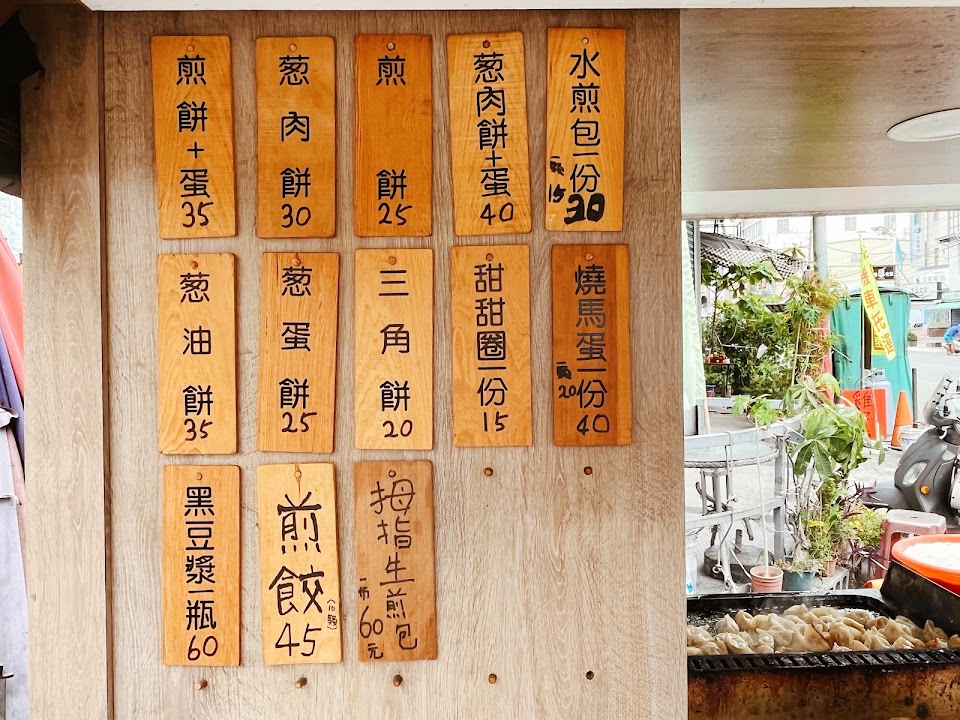 煎餅+蛋
35
葱肉餅
30
煎餅
25
葱肉餅+蛋
40
水煎包一份
30
一顆
15
葱油餅
35
葱蛋餅
25
三角餅
20
甜甜圈一份
15
燒馬蛋一份
40
20
黑豆漿一瓶
60
煎餃
(10顆)
45
拇指生煎包
一份60元